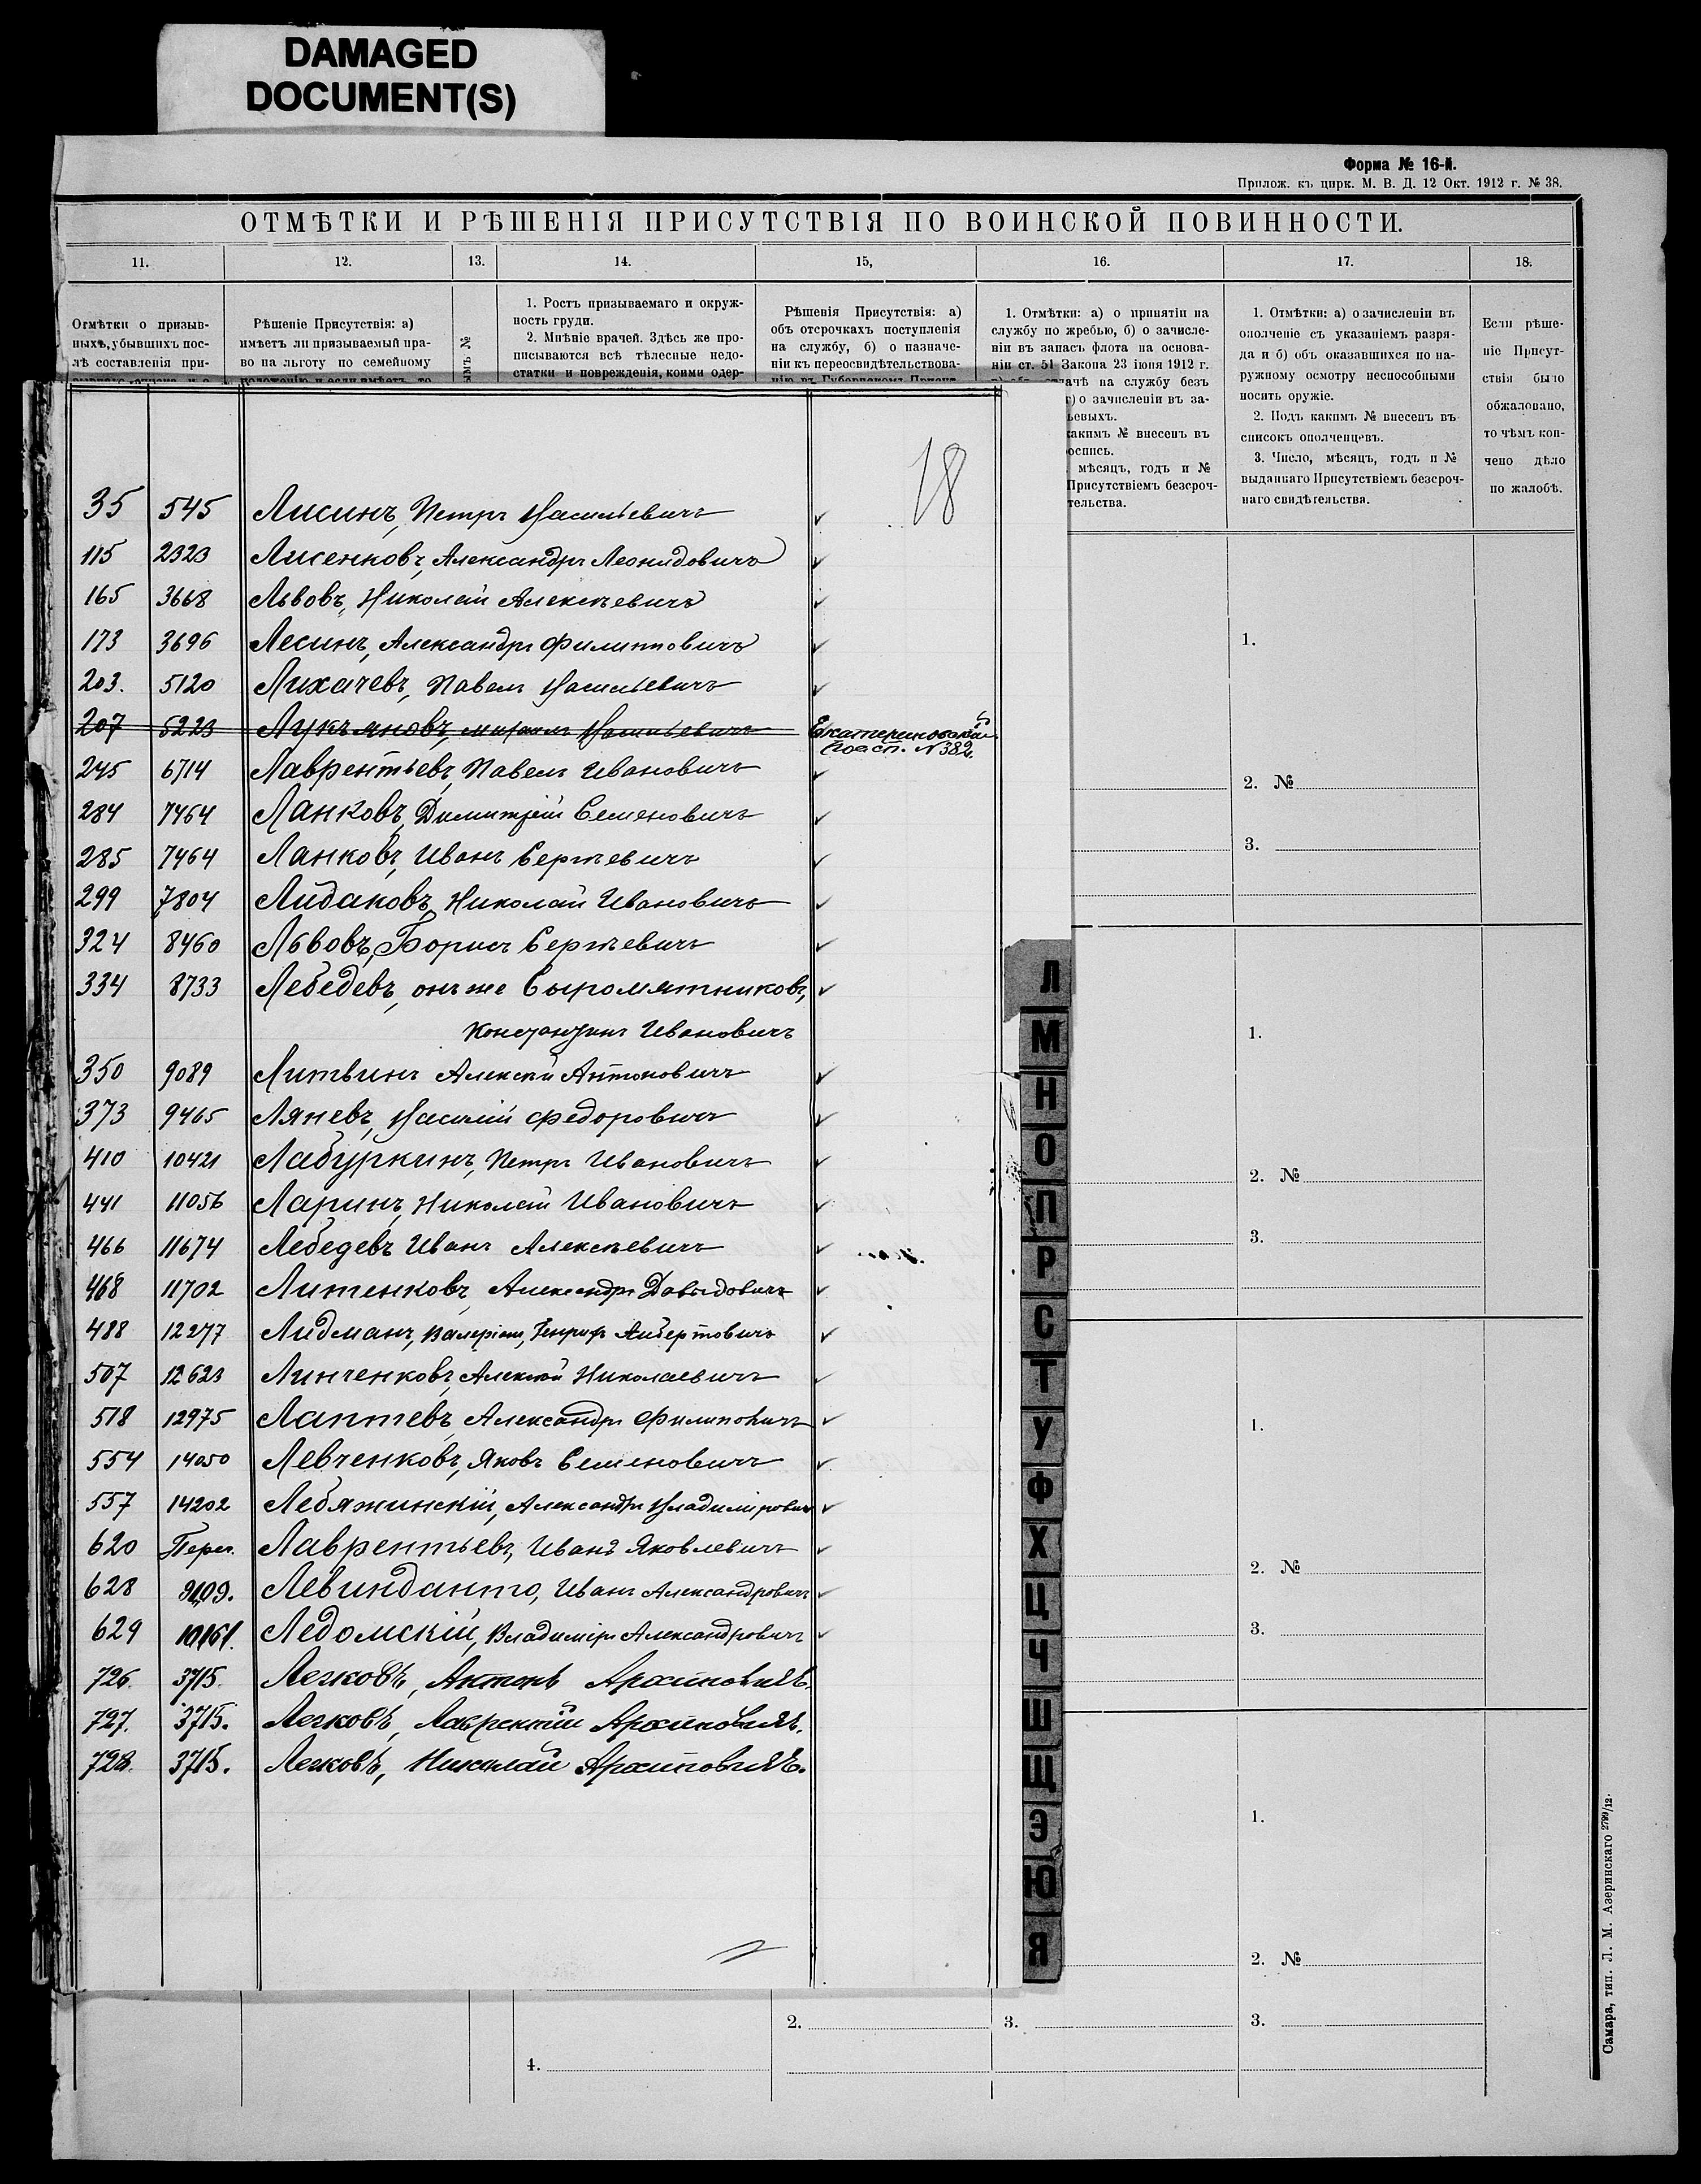 DAMAGED
DOCUMENT(S)
Форма № 16-й.
Прилож. къ цирк. М. В. Д. 12 Окт. 1912 г. № 38.
ОТМѢТКИ И РѢШЕНІЯ ПРИСУТСТВІЯ ПО ВОИНСКОЙ ПОВИННОСТИ.
11. 12. 13. 14. 15, 16. 17. 18.
Отмѣтки о призыв-
ныхъ, убывшихъ пос-
лѣ составленія при-
Рѣшеніе Присутствія: а)
имѣетъ ли призываемый пра-
во на льготу по семейному
положенію и если имѣетъ, то
№
1. Ростъ призываемаго и окруж-
ность груди.
2. Мнѣніе врачей. Здѣсь же про-
писываются всѣ тѣлесные недо-
статки и поврежденія, коими одер-
Рѣшенія Присутствія: а)
объ отсрочкахъ поступленія
на службу, б) о назначе-
ніи къ переосвидѣтельствова-
нію въ Губернскомъ Присут-
1. Отмѣтки: а) о принятіи на
службу по жребью, б) о зачисле-
ніи въ запасъ флота на основа-
ніи ст. 51 Закона 23 іюня 1912 г.
ачѣ на службу безъ
г) о зачисленіи въ за-
ьевыхъ.
акимъ № внесенъ въ
оспись.
мѣсяцъ, годъ и №
Присутствіемъ безсроч-
тельства.
1. Отмѣтки: а) о зачисленіи въ
ополченіе съ указаніемъ разря-
да и б) объ оказавшихся по на-
ружному осмотру неспособными
носить оружіе.
2. Подъ какимъ № внесенъ въ
списокъ ополченцевъ.
3. Число, мѣсяцъ, годъ и №
выданнаго Присутствіемъ безсроч-
наго свидѣтельства.
Если рѣше-
ніе Присут-
ствія было
обжаловано,
то чѣмъ кон-
чено дѣло
по жалобѣ.
18
35 545 Лисинъ, Петръ Васильевичъ
115 2323 Лисенковъ, Александръ Леонидовичъ
165 3668 Львовъ, Николай Алексѣевичъ
173 3696 Лесинъ, Александръ Филипповичъ
203. 5120 Лихачевъ, Павелъ Васильевичъ
207 5223 Лукъяновъ, Михаилъ Васильевичъ Екатериновской
посп. № 382.
245 6714 Лаврентьевъ, Павелъ Ивановичъ
284 7464 Ланковъ, Димитрій Семеновичъ
285 7464 Ланковъ, Иванъ Сергѣевичъ
299 7804 Лидаковъ, Николай Ивановичъ
324 8460 Львовъ, Борисъ Сергѣевичъ
334 8733 Лебедевъ, онъ же Сыромятниковъ,
Константинъ Ивановичъ
350 9089 Литвинъ Алексѣй Антоновичъ
373 9465 Ляпевъ, Василій Федоровичъ
410 10421 Лабуркинъ, Петръ Ивановичъ
441 11056 Ларинъ, Николай Ивановичъ
466 11674 Лебедевъ Иванъ Алексѣевичъ
468 11702 Литенковъ, Александръ Давыдовичъ
488 12277 Лидманъ, Валеріанъ, Генрихъ Альбертовичъ
507 12623 Линченковъ, Алексѣй Николаевичъ
518 12975 Лаптевъ, Александръ Филиповичъ
554 14050 Левченковъ, Яковъ Семеновичъ
557 14202 Лебяжинскій, Александръ Владиміровичъ
620 Перег. Лаврентьевъ, Иванъ Яковлевичъ
628 9109. Левинданто, Иванъ Александровичъ
629 10161. Ледомскій, Владиміръ Александровичъ
726. 3715. Легковъ, Антонъ
727. 3715. Легковъ, Лаврентій
728. 3715. Легковъ, Николай
Л
М
Н
О
П
Р
С
Т
У
Ф
Х
Ц
Ч
Ш
Щ
Э
Ю
Я
1.
2. №
3.
1.
2. №
3.
1.
2. №
3.
1.
2. №
2. 3. 3.
4.
Самара, тип. Л. М. Азеринскаго 2799/12.